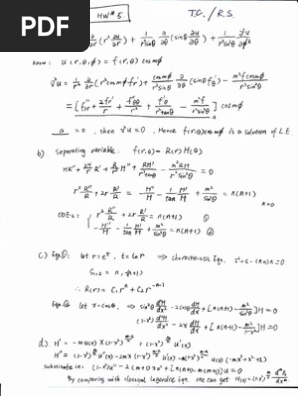 PDF
HW#5
T.C./R.S.
∂/∂r (r² ∂u/∂r) + 1/(r² sinθ) ∂/∂θ (sinθ ∂u/∂θ) + 1/(r² sin²θ) ∂²u/∂φ²
u(r,θ,φ) = f(r,θ) cos mφ
∇²u = 1/r² ∂/∂r (r² cos mφ f_r) + cos mφ/(r² sinθ) ∂/∂θ (sinθ f_θ) - m² f cos mφ/(r² sin²θ)
= [f_rr + 2f_r/r + f_θθ/r² + f_θ/(r² tanθ) - m² f/(r² sin²θ)] cos mφ
= 0, then ∇²u = 0, Hence f(r,θ) cos mφ is a solution of L.E
b) separating variable: f(r,θ) = R(r) H(θ)
HR'' + 2H/r R' + R/r² H'' + RH'/(r² tanθ) - m² RH/(r² sin²θ) = 0
r² R''/R + 2r R'/R = - H''/H - 1/tanθ H'/H + m²/sin²θ = n(n+1)
n>0
ODEs: r² R''/R + 2r R'/R = n(n+1) ①
- H''/H - 1/tanθ H'/H + m²/sin²θ = n(n+1) ②
c) Eq.①: let r = e^t, t = log r ⇒ characteristic Eq.
S₁,₂ = n, -(n+1)
∴ R(r) = C₁ r^n + C₂ r^(-n-1)
Eq.② let x = cosθ, ⇒ sin²θ d²H/dx² - 2cosθ dH/dx + [n(n+1) - m²/sin²θ] H = 0
(1-x²) d²H/dx² - 2x dH/dx + [n(n+1) - m²/(1-x²)] H = 0
d)
substitute in: (1-x²)u'' - 2(m+1)xu' + [n(n+1) - m(m+1)]u = 0
By comparing with classical legendre eqn. one can get